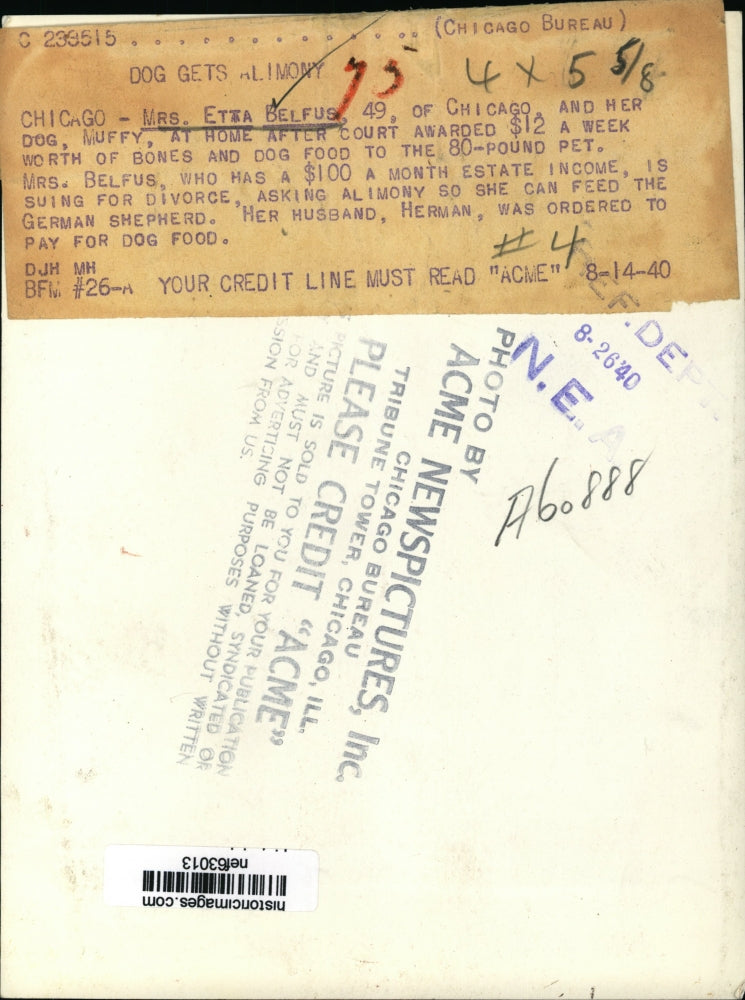 C 233515 . . . . . . . . . . . . . . (CHICAGO BUREAU)
DOG GETS ALIMONY
75
4 X 5 5/8
CHICAGO - MRS. ETTA BELFUS, 49, OF CHICAGO, AND HER
DOG, MUFFY, AT HOME AFTER COURT AWARDED $12 A WEEK
WORTH OF BONES AND DOG FOOD TO THE 80-POUND PET.
MRS. BELFUS, WHO HAS A $100 A MONTH ESTATE INCOME, IS
SUING FOR DIVORCE, ASKING ALIMONY SO SHE CAN FEED THE
GERMAN SHEPHERD. HER HUSBAND, HERMAN, WAS ORDERED TO
PAY FOR DOG FOOD.
#4
DJH MH
BFM #26-A YOUR CREDIT LINE MUST READ "ACME" 8-14-40
REF. DEP
8-26 40
N.E.A
A60888
PHOTO BY
ACME NEWSPICTURES, Inc.
CHICAGO BUREAU
TRIBUNE TOWER, CHICAGO, ILL.
PLEASE CREDIT "ACME"
PICTURE IS SOLD TO YOU FOR YOUR PUBLICATION
AND MUST NOT BE LOANED, SYNDICATED OR
FOR ADVERTICING PURPOSES WITHOUT WRITTEN
SSION FROM US.
historicimages.com
nef63013